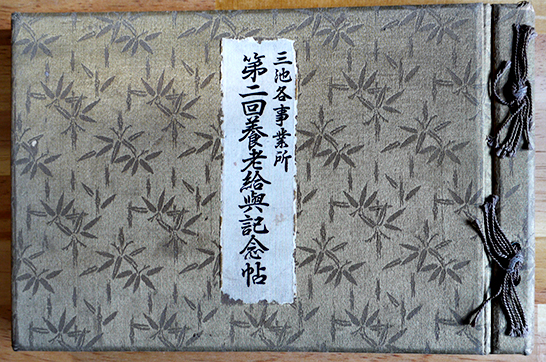 三池各事業所
第二回養老給與記念帖